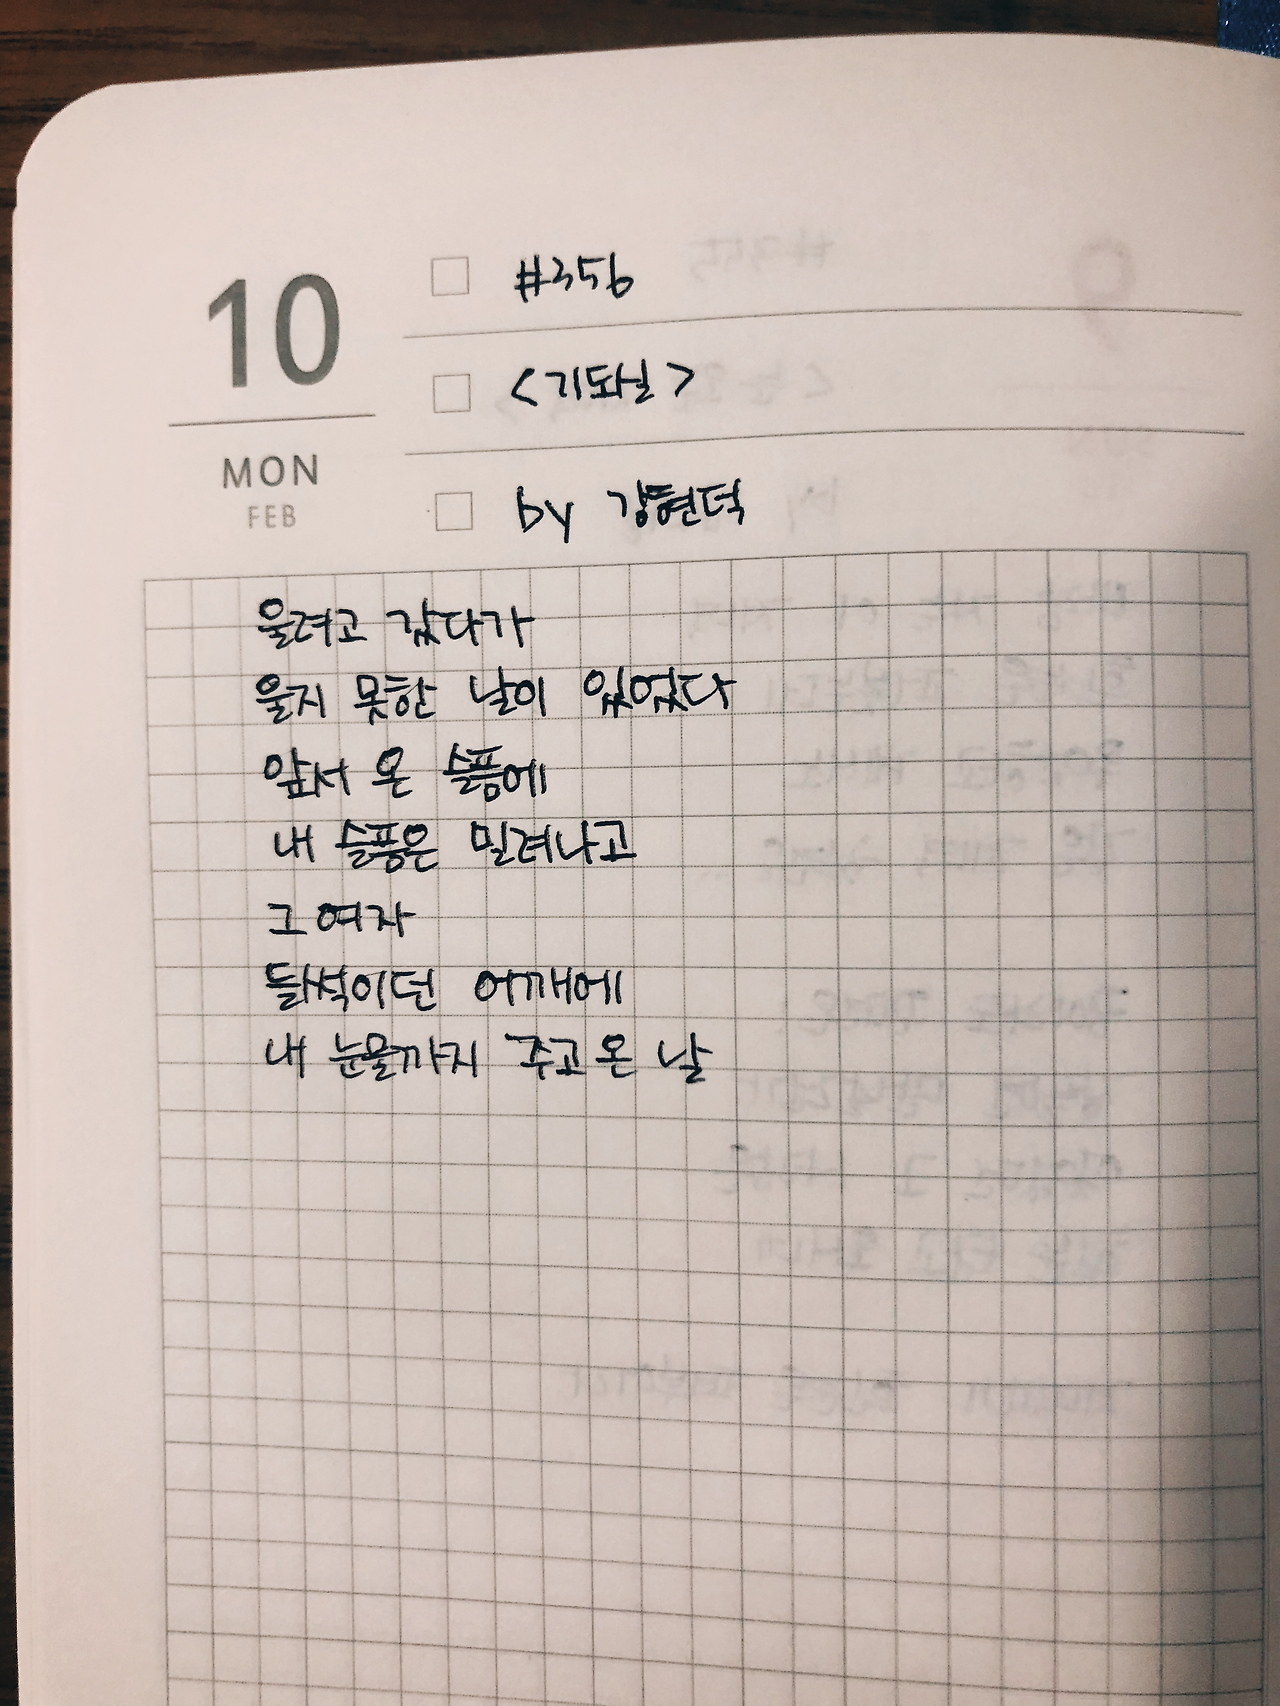 10
MON
FEB
#356
<기도실>
by 강현덕
울려고 갔다가
울지 못한 날이 있었다
앞서 온 슬픔에
내 슬픔은 밀려나고
그 여자
들썩이던 어깨에
내 눈물까지 주고 온 날